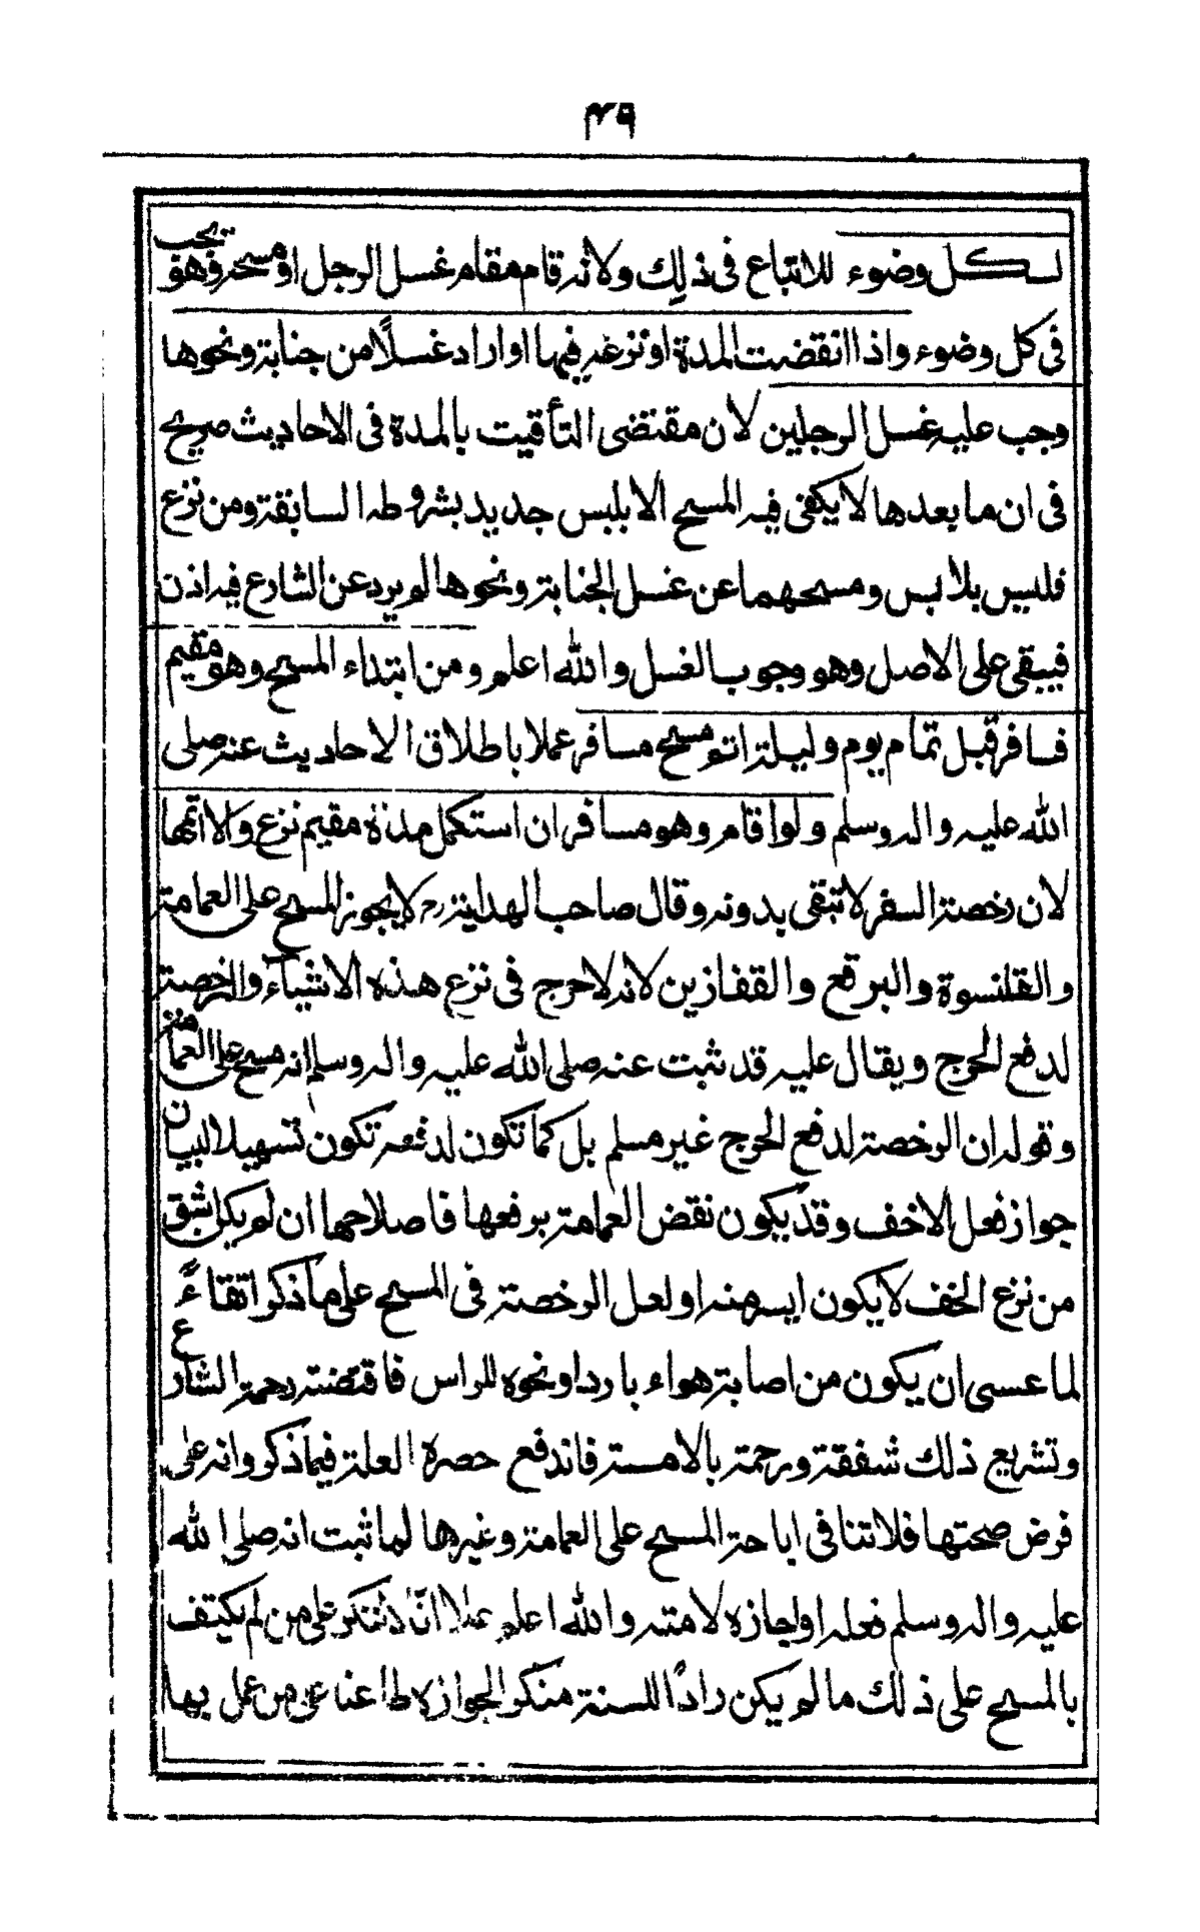 ٤٩
لكل وضوء للاتباع فى ذلك ولانه قام مقام غسل الرجل او مسحه وهو يجب
فى كل وضوء واذا انقضت المدة او نزعه فيها او اراد غسلًا من جنابة ونحوها
وجب عليه غسل الرجلين لان مقتضى التأقيت بالمدة فى الاحاديث صريح
فى ان ما بعدها لا يكفى فيه المسح الا بلبس جديد بشروطه السابقة ومن نزع
فليس بلابس ومسحهما عن غسل الجنابة ونحوها لم يرد عن الشارع فيه اذن
فيبقى على الاصل وهو وجوب الغسل والله اعلم ومن ابتداء المسح وهو مقيم
فسافر قبل تمام يوم وليلة اتم مسح مسافر عملا باطلاق الاحاديث عنه صلى
الله عليه واله وسلم ولو اقام وهو مسافر ان استكمل مدة مقيم نزع والا اتمها
لان رخصة السفر لا تبقى بدونه وقال صاحب الهداية رح لا يجوز المسح على العمامة
والقلنسوة والبرقع والقفازين لانه لا حرج فى نزع هذه الاشياء والرخصة
لدفع الحرج ويقال عليه قد ثبت عنه صلى الله عليه واله وسلم انه مسح على العمامة
وقوله ان الرخصة لدفع الحرج غير مسلم بل كما تكون لدفعه تكون تسهيلا لبيان
جواز فعل الاخف وقد يكون نقض العمامة برفعها فاصلاحها ان لم يكن اشق
من نزع الخف لا يكون ايسر منه او لعل الرخصة فى المسح على ما ذكر اتقاءً
لما عسى ان يكون من اصابة هواء بارد او نحوه للراس فاقتضته رحمة الشارع
وتشريع ذلك شفقة ورحمة بالامة فاندفع حصره العلة فيما ذكر وانه على
فرض صحتها فلا تنافى اباحة المسح على العمامة وغيرها لما ثبت انه صلى الله
عليه واله وسلم فعله او اجازه لامته والله اعلم على من لم يكتف
بالمسح على ذلك ما لم يكن رادًا للسنة منكرا لجوازه طاعنا على من عمل بها